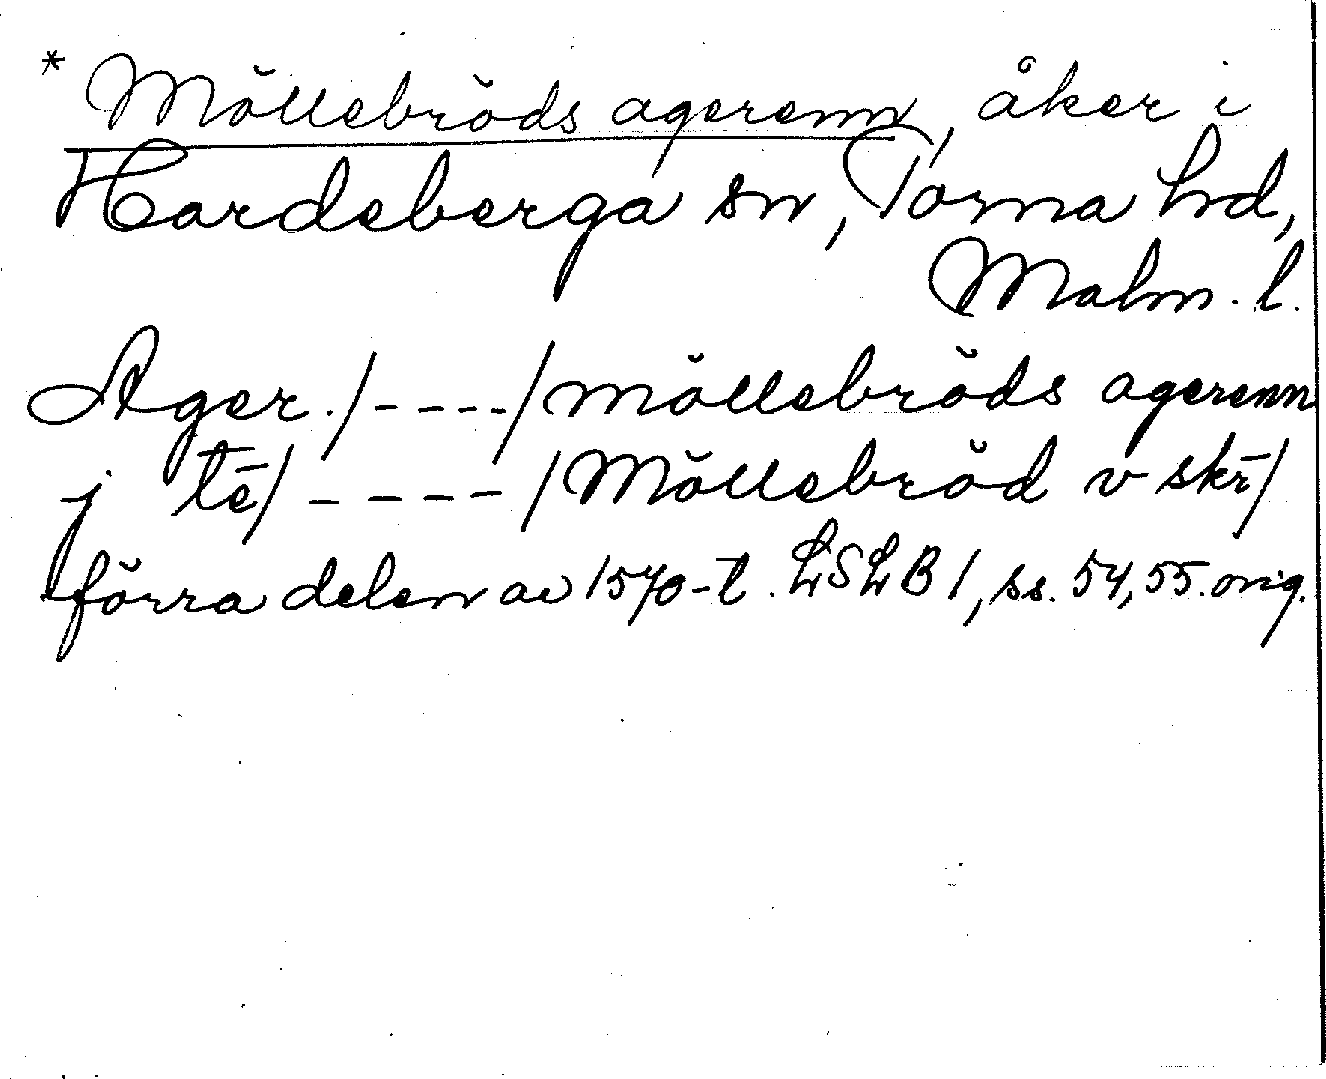 * Möllebröds agerenn, åker i
Hardeberga sn, Torna hd,
Malm. l.
Ager./----/möllebröds agerenn
j tē/----/Möllebröd v skr̄/
förra delen av 1570-t. LSLB 1, ss. 54, 55. orig.